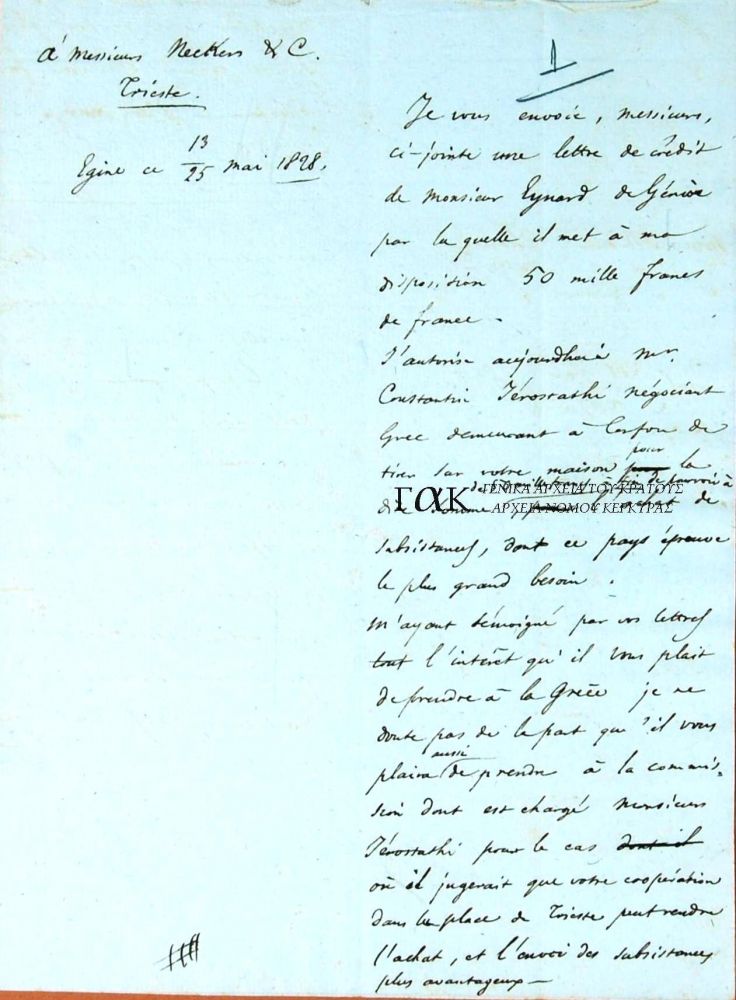 à Messieurs Neckers & C.
Trieste.
Egine ce 13/25 mai 1828.
1
Je vous envoie, messieurs,
ci-jointe une lettre de crédit
de Monsieur Eynard de Génève
par la quelle il met à ma
disposition 50 mille francs
de france.
J'autorise aujourdhui mr.
Constantin Iérostathi négociant
Grec demeurant à Corfou de
tirer sur votre maison pour la
dite somme
ΓΑΚ ΓΕΝΙΚΑ ΑΡΧΕΙΑ ΤΟΥ ΚΡΑΤΟΥΣ
ΑΡΧΕΙΑ ΝΟΜΟΥ ΚΕΡΚΥΡΑΣ
subsistances, dont ce pays éprouve
le plus grand besoin.
M'ayant témoigné par vos lettres
tout l'intérêt qu'il vous plait
de prendre à la Grèce je ne
doute pas de la part qu'il vous
plaira aussi de prendre à la commis=
sion dont est chargé Monsieur
Iérostathi pour le cas dont il
où il jugerait que votre coopération
dans la place de Trieste peut rendre
l'achat, et l'envoi des subsistances
plus avantageux —